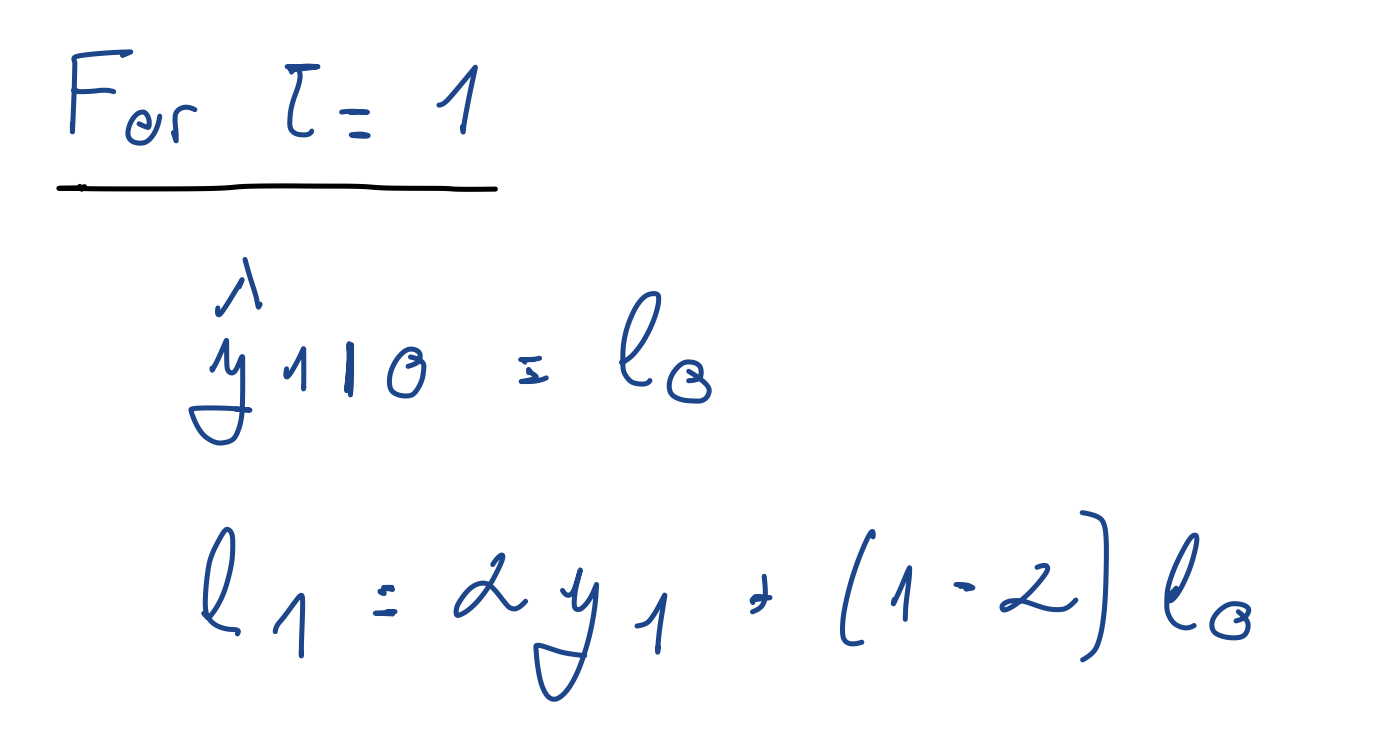 For τ = 1
ŷ 1|0 = l0
l1 = α y1 + (1 - α) l0